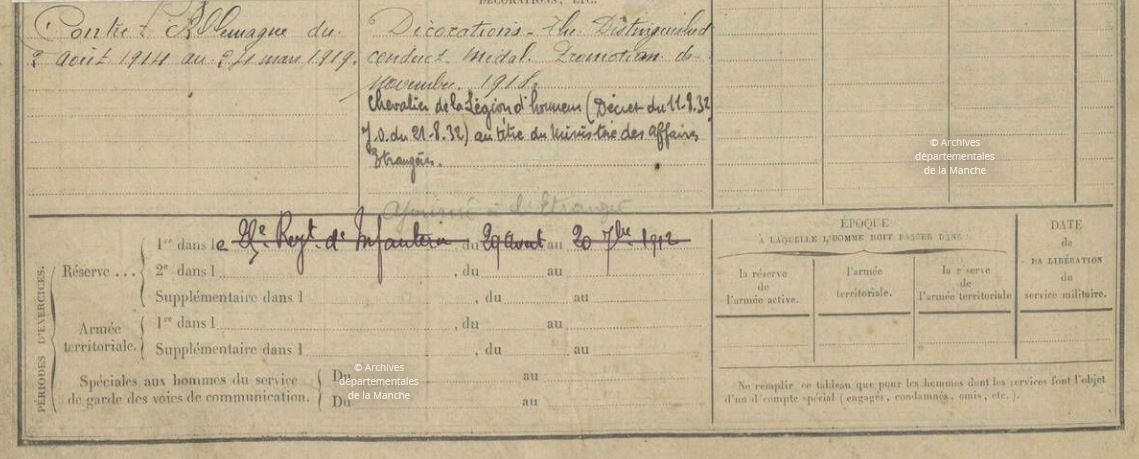 DÉCORATIONS, ETC.
Contre l'Allemagne du
2 août 1914 au 24 mars 1919.
Décorations - The Distinguished
conduct Médal. Promotion de
Novembre 1918.
Chevalier de la Légion d'honneur (Décret du 11-8.32
J.O. du 21-8.32) au titre du Ministère des Affaires
Etrangères.
© Archives
départementales
de la Manche
Ajourné à l'Etranger
PÉRIODES D'EXERCICES.
Réserve ...
1re dans le 25e Regt. d'Infanterie, du 29 Aout au 20 7bre 1912
2e dans l , du au
Supplémentaire dans l , du au
Armée
territoriale.
1re dans l , du au
Supplémentaire dans l , du au
Spéciales aux hommes du service
de garde des voies de communication.
Du au
Du au
© Archives
départementales
de la Manche
ÉPOQUE
À LAQUELLE L'HOMME DOIT PASSER DANS :
la réserve
de
l'armée active.
l'armée
territoriale.
la réserve
de
l'armée territoriale
DATE
de
LA LIBÉRATION
du
service militaire.
Ne remplir ce tableau que pour les hommes dont les services font l'objet
d'un d'compte spécial (engagés, condamnés, omis, etc.).